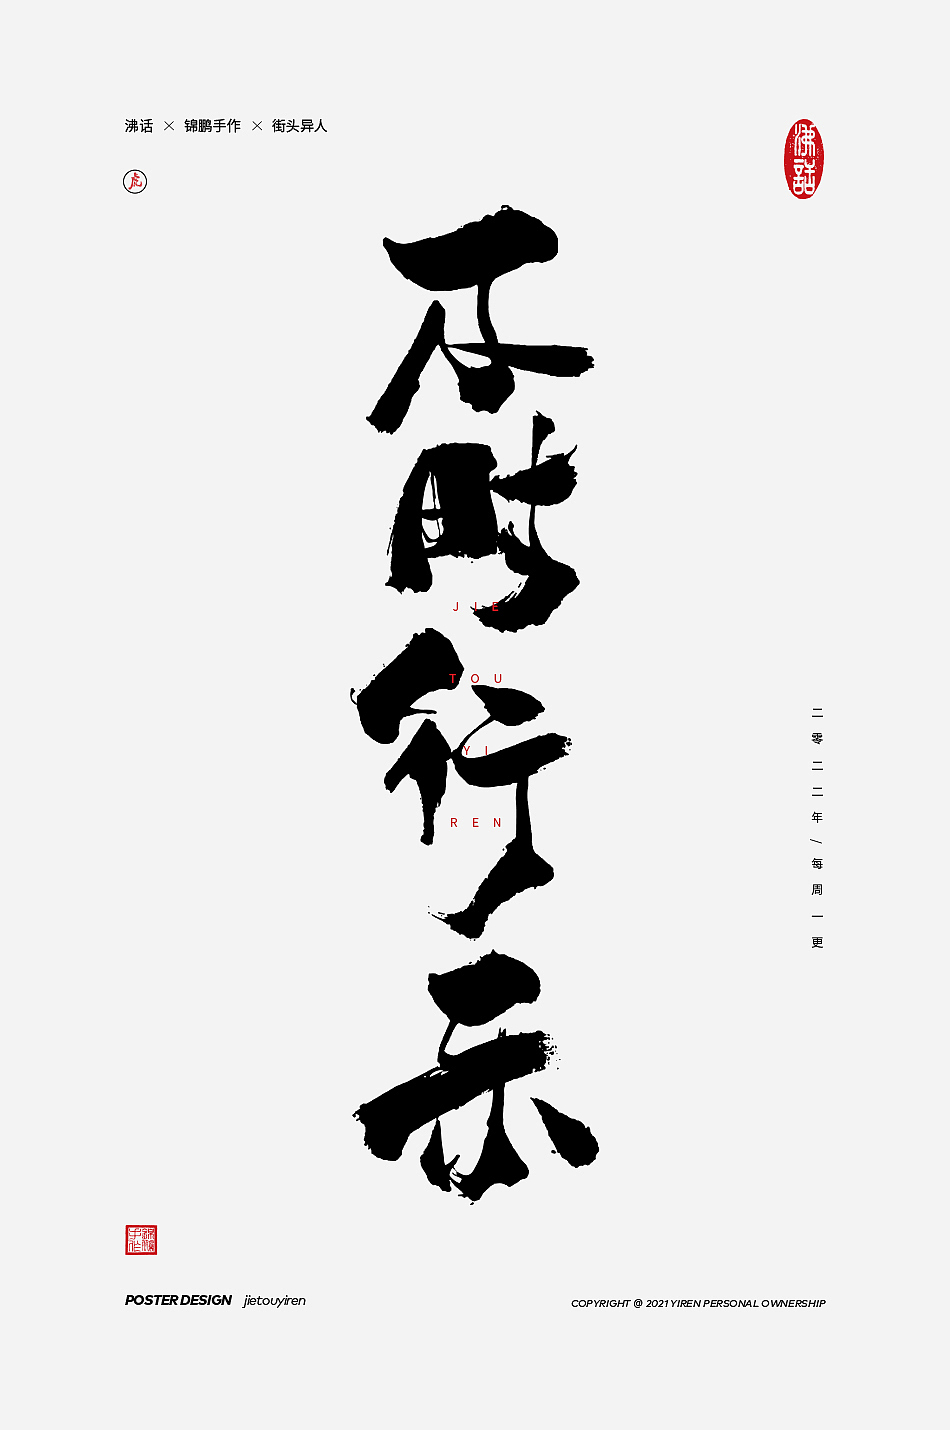 沸话 × 锦鹏手作 × 街头异人
虎
沸話
及时行乐
JIE
TOU
YI
REN
二零二二年/每周一更
POSTER DESIGN jietouyiren
COPYRIGHT @ 2021 YIREN PERSONAL OWNERSHIP